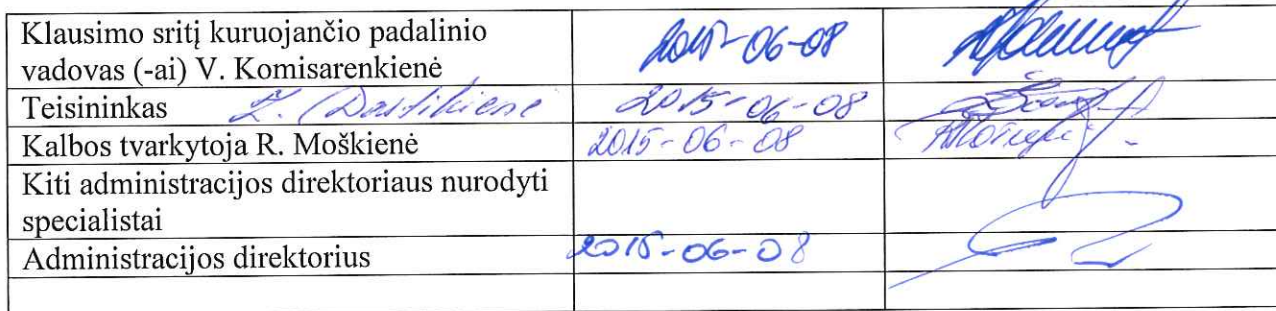 Klausimo sritį kuruojančio padalinio
vadovas (-ai) V. Komisarenkienė 2015-06-08
Teisininkas 2015-06-08
Kalbos tvarkytoja R. Moškienė 2015-06-08
Kiti administracijos direktoriaus nurodyti
specialistai
Administracijos direktorius 2015-06-08